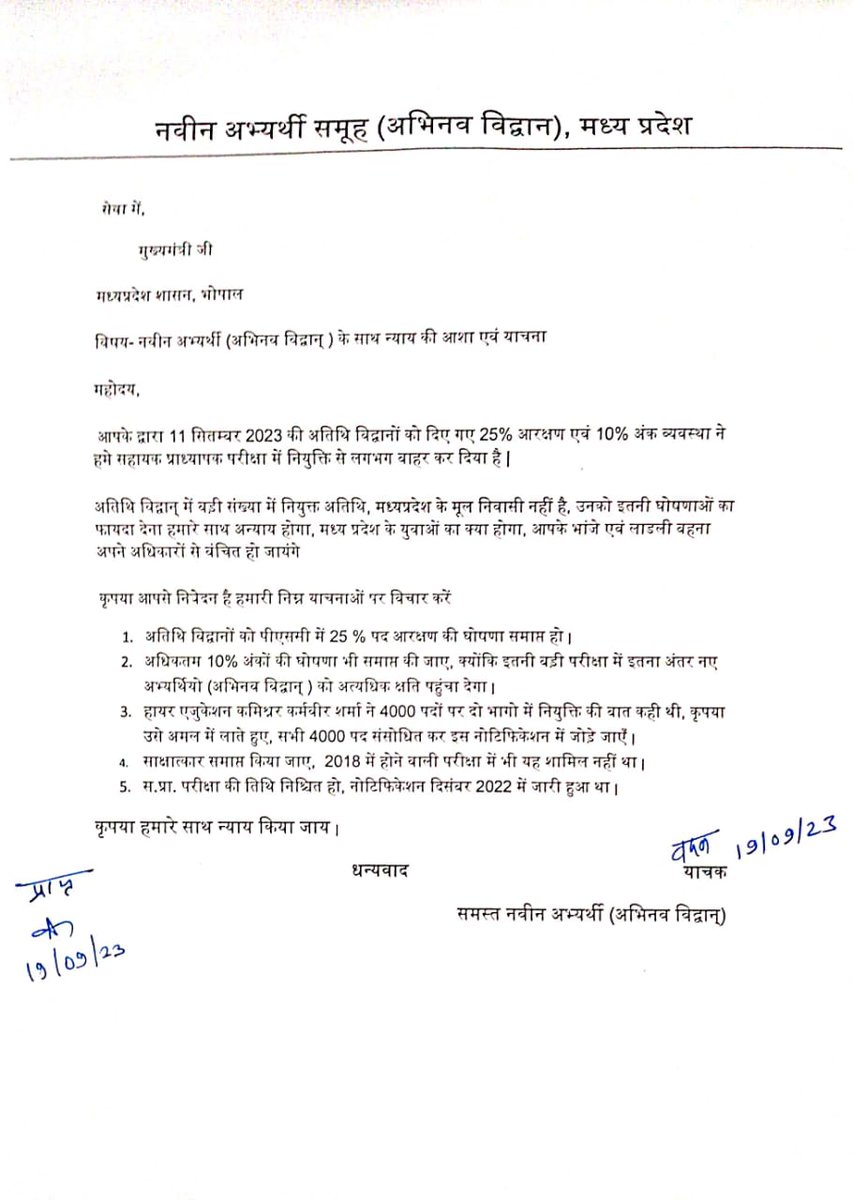 नवीन अभ्यर्थी समूह (अभिनव विद्वान), मध्य प्रदेश
सेवा में,
मुख्यमंत्री जी
मध्यप्रदेश शासन, भोपाल
विषय- नवीन अभ्यर्थी (अभिनव विद्वान् ) के साथ न्याय की आशा एवं याचना
महोदय,
आपके द्वारा 11 सितम्बर 2023 की अतिथि विद्वानों को दिए गए 25% आरक्षण एवं 10% अंक व्यवस्था ने
हमे सहायक प्राध्यापक परीक्षा में नियुक्ति से लगभग वाहर कर दिया है |
अतिथि विद्वान् में बड़ी संख्या में नियुक्त अतिथि, मध्यप्रदेश के मूल निवासी नहीं है, उनको इतनी घोषणाओं का
फायदा देना हमारे साथ अन्याय होगा, मध्य प्रदेश के युवाओं का क्या होगा, आपके भांजे एवं लाडली बहना
अपने अधिकारों से वंचित हो जायंगे
कृपया आपसे निवेदन है हमारी निम्न याचनाओं पर विचार करें
1. अतिथि विद्वानों को पीएससी में 25 % पद आरक्षण की घोषणा समाप्त हो |
2. अधिकतम 10% अंकों की घोषणा भी समाप्त की जाए, क्योंकि इतनी बड़ी परीक्षा में इतना अंतर नए
अभ्यर्थियो (अभिनव विद्वान् ) को अत्यधिक क्षति पहुंचा देगा |
3. हायर एजुकेशन कमिश्नर कर्मवीर शर्मा ने 4000 पदों पर दो भागो में नियुक्ति की बात कही थी, कृपया
उसे अमल में लाते हुए, सभी 4000 पद संसोधित कर इस नोटिफिकेशन में जोड़े जाएँ |
4. साक्षात्कार समाप्त किया जाए, 2018 में होने वाली परीक्षा में भी यह शामिल नहीं था |
5. स.प्रा. परीक्षा की तिथि निश्चित हो, नोटिफिकेशन दिसंबर 2022 में जारी हुआ था |
कृपया हमारे साथ न्याय किया जाय |
19/09/23
धन्यवाद
याचक
समस्त नवीन अभ्यर्थी (अभिनव विद्वान्)
प्राप्त
19/09/23